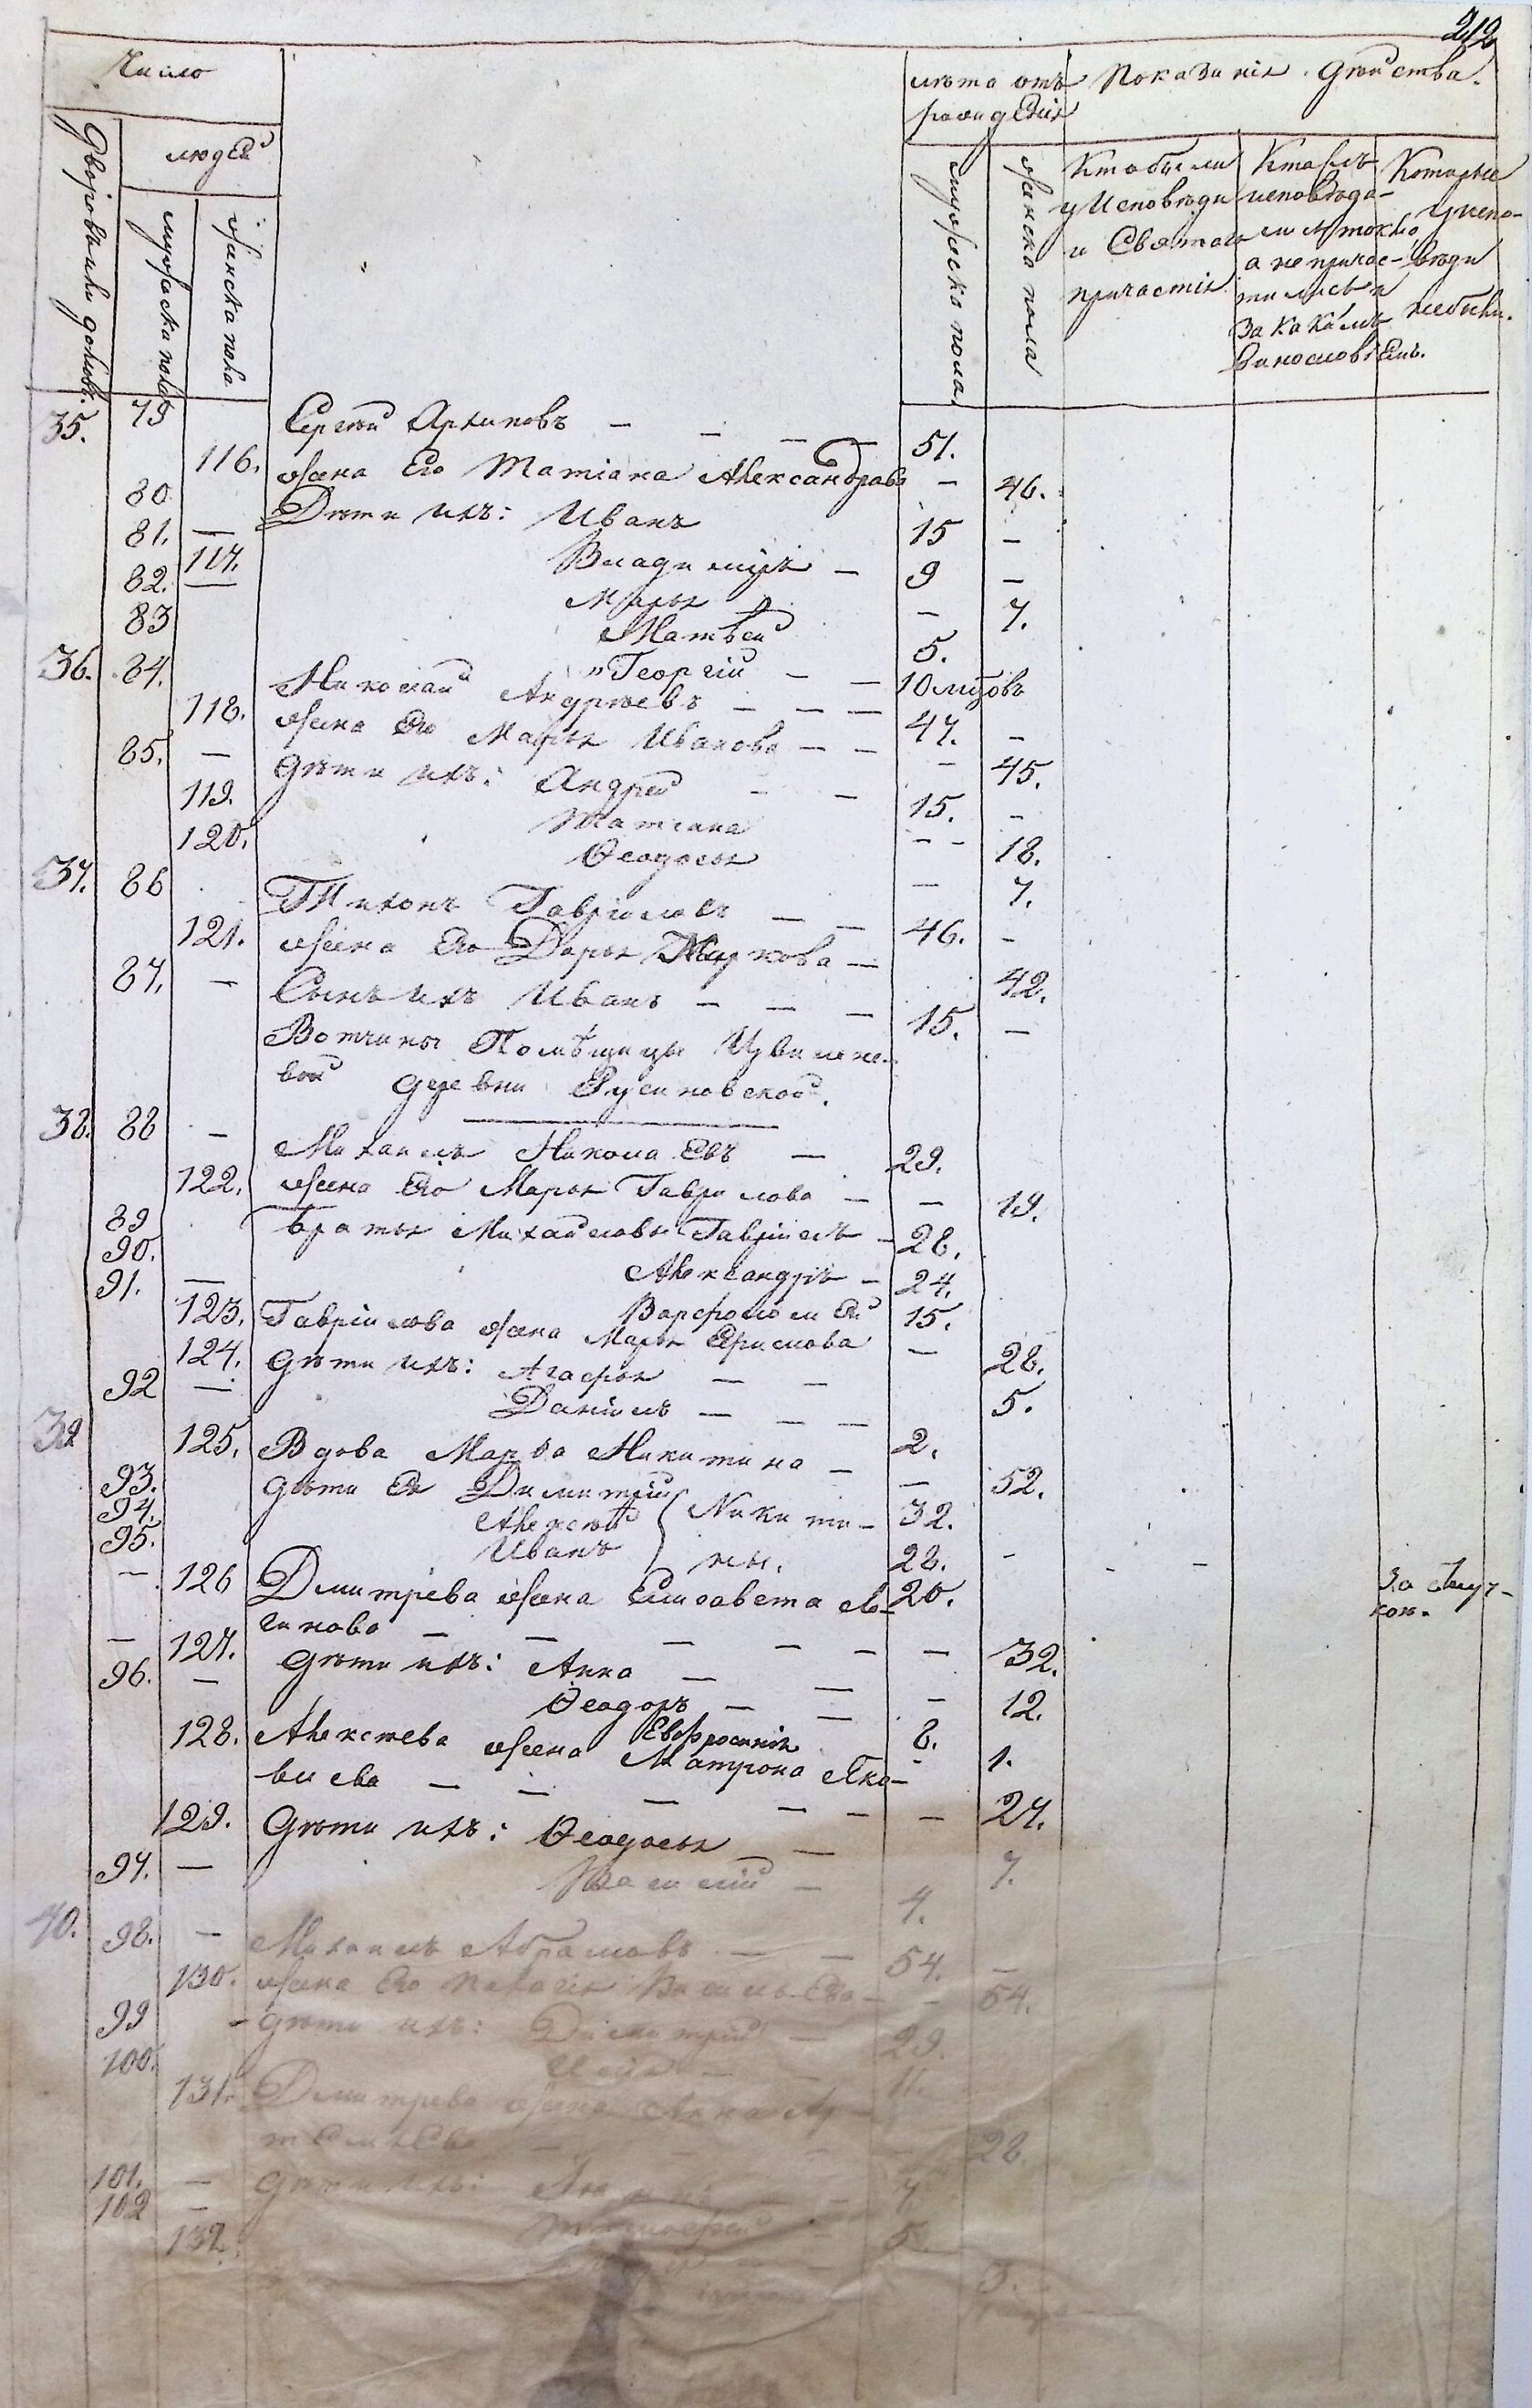 212
Число
лѣта отъ рождедія
Показанія дѣйства.
Дворовыхъ домовъ.
людей
мужеска пола
женска пола
мужеска пола.
женска пола
Кто были у Исповѣди и Святаго причастія
Кто былъ исповѣдались токмо а не причастились и за какимъ винословіемъ.
Которые у исповѣди небыли.
35. 79 Сергѣй Архиповъ — — — — 51.
116. жена Его Татіана Александрова — 46.
80 Дѣти ихъ: Иванъ 15 —
81. — Владимиръ — 9 —
82. 117. Марья — 7.
83 Матвей 5.
"Георгій — — 10 мцовъ
36. 84. Николай Андрѣевъ — — — 47. —
118. жена Его Марья Иванова — — — 45.
85. — дѣти ихъ: Андрей — — 15. —
119. Татіана — — 18.
120. Ѳеодосья — 7.
37. 86 Тихонъ Гавриловъ — — 46. —
121. жена Его Дарья Маркова — 42.
87. — Сынъ ихъ Иванъ — — — 15. —
Вотчины Помѣщицы
вой деревни Русиновской.
38. 88 — Михаилъ Николаевъ — 29.
122. жена Его Марья Гаврилова — — 19.
89 братья Михайловы Гавріилъ — 28.
90. Александръ — 24.
91. — Варфоломей 15.
123. Гавріилова жена Марья — 28.
124. дѣти ихъ: Агафья — — 5.
92 — Даніилъ — — — 2.
39 125. Вдова Марѳа Никитина — — 52.
93. дѣти Ея Димитрій 32.
94. Алексѣй { Никити- 28. —
95. Иванъ ны. 20.
— 126 Дмитрева жена Елисавета Ло-
гинова — — — — — — 32. За отлуч-
кою.
— 127. дѣти ихъ: Анна — — — 12.
96. — Ѳеодоръ — — 8.
Евфросинія — 1.
128. Алексѣева жена Матрона Яко-
влева — — — — — — 27.
129. дѣти ихъ: Ѳеодосья — — 7.
97. — Василій — 4.
40. 98. — Михаилъ Абрамовъ — — 54. —
130. жена Его Пелагія Васильева — — 54.
99 — дѣти ихъ: Димитрій — 29.
100. — 11.
131. Дмитрева жена Анна Ар-
темьева — — 28.
101. — дѣти ихъ: — — 7
102 — Тимофей 5
132. 3.